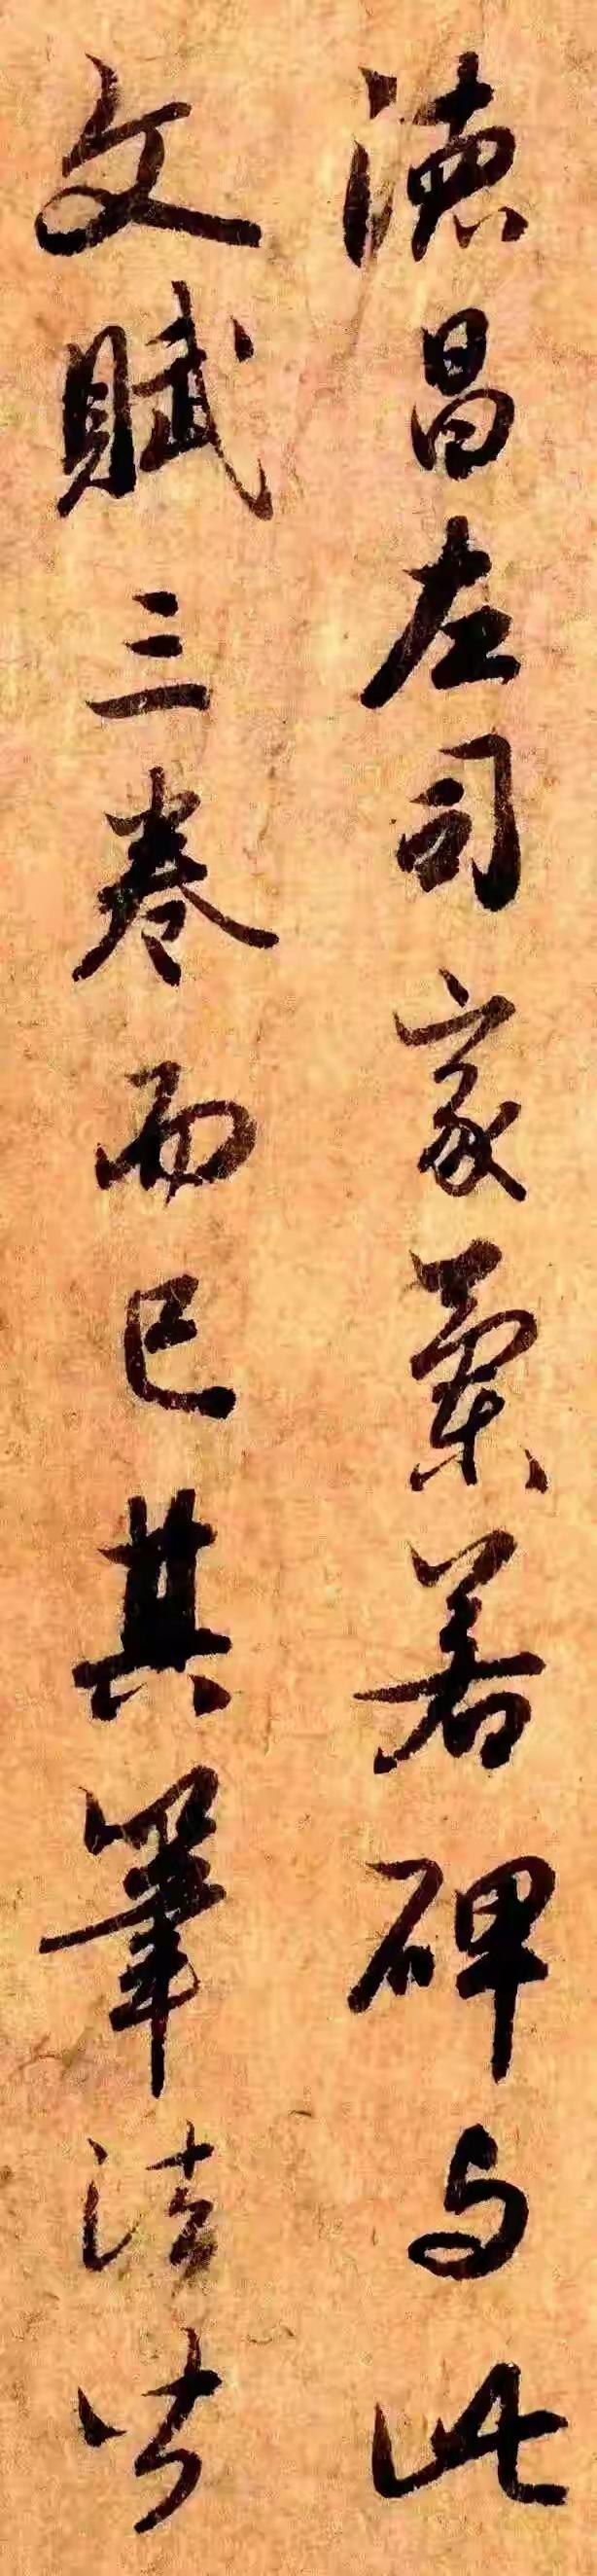 德昌左司家蘭若碑与此
文賦三卷而已其筆法皆